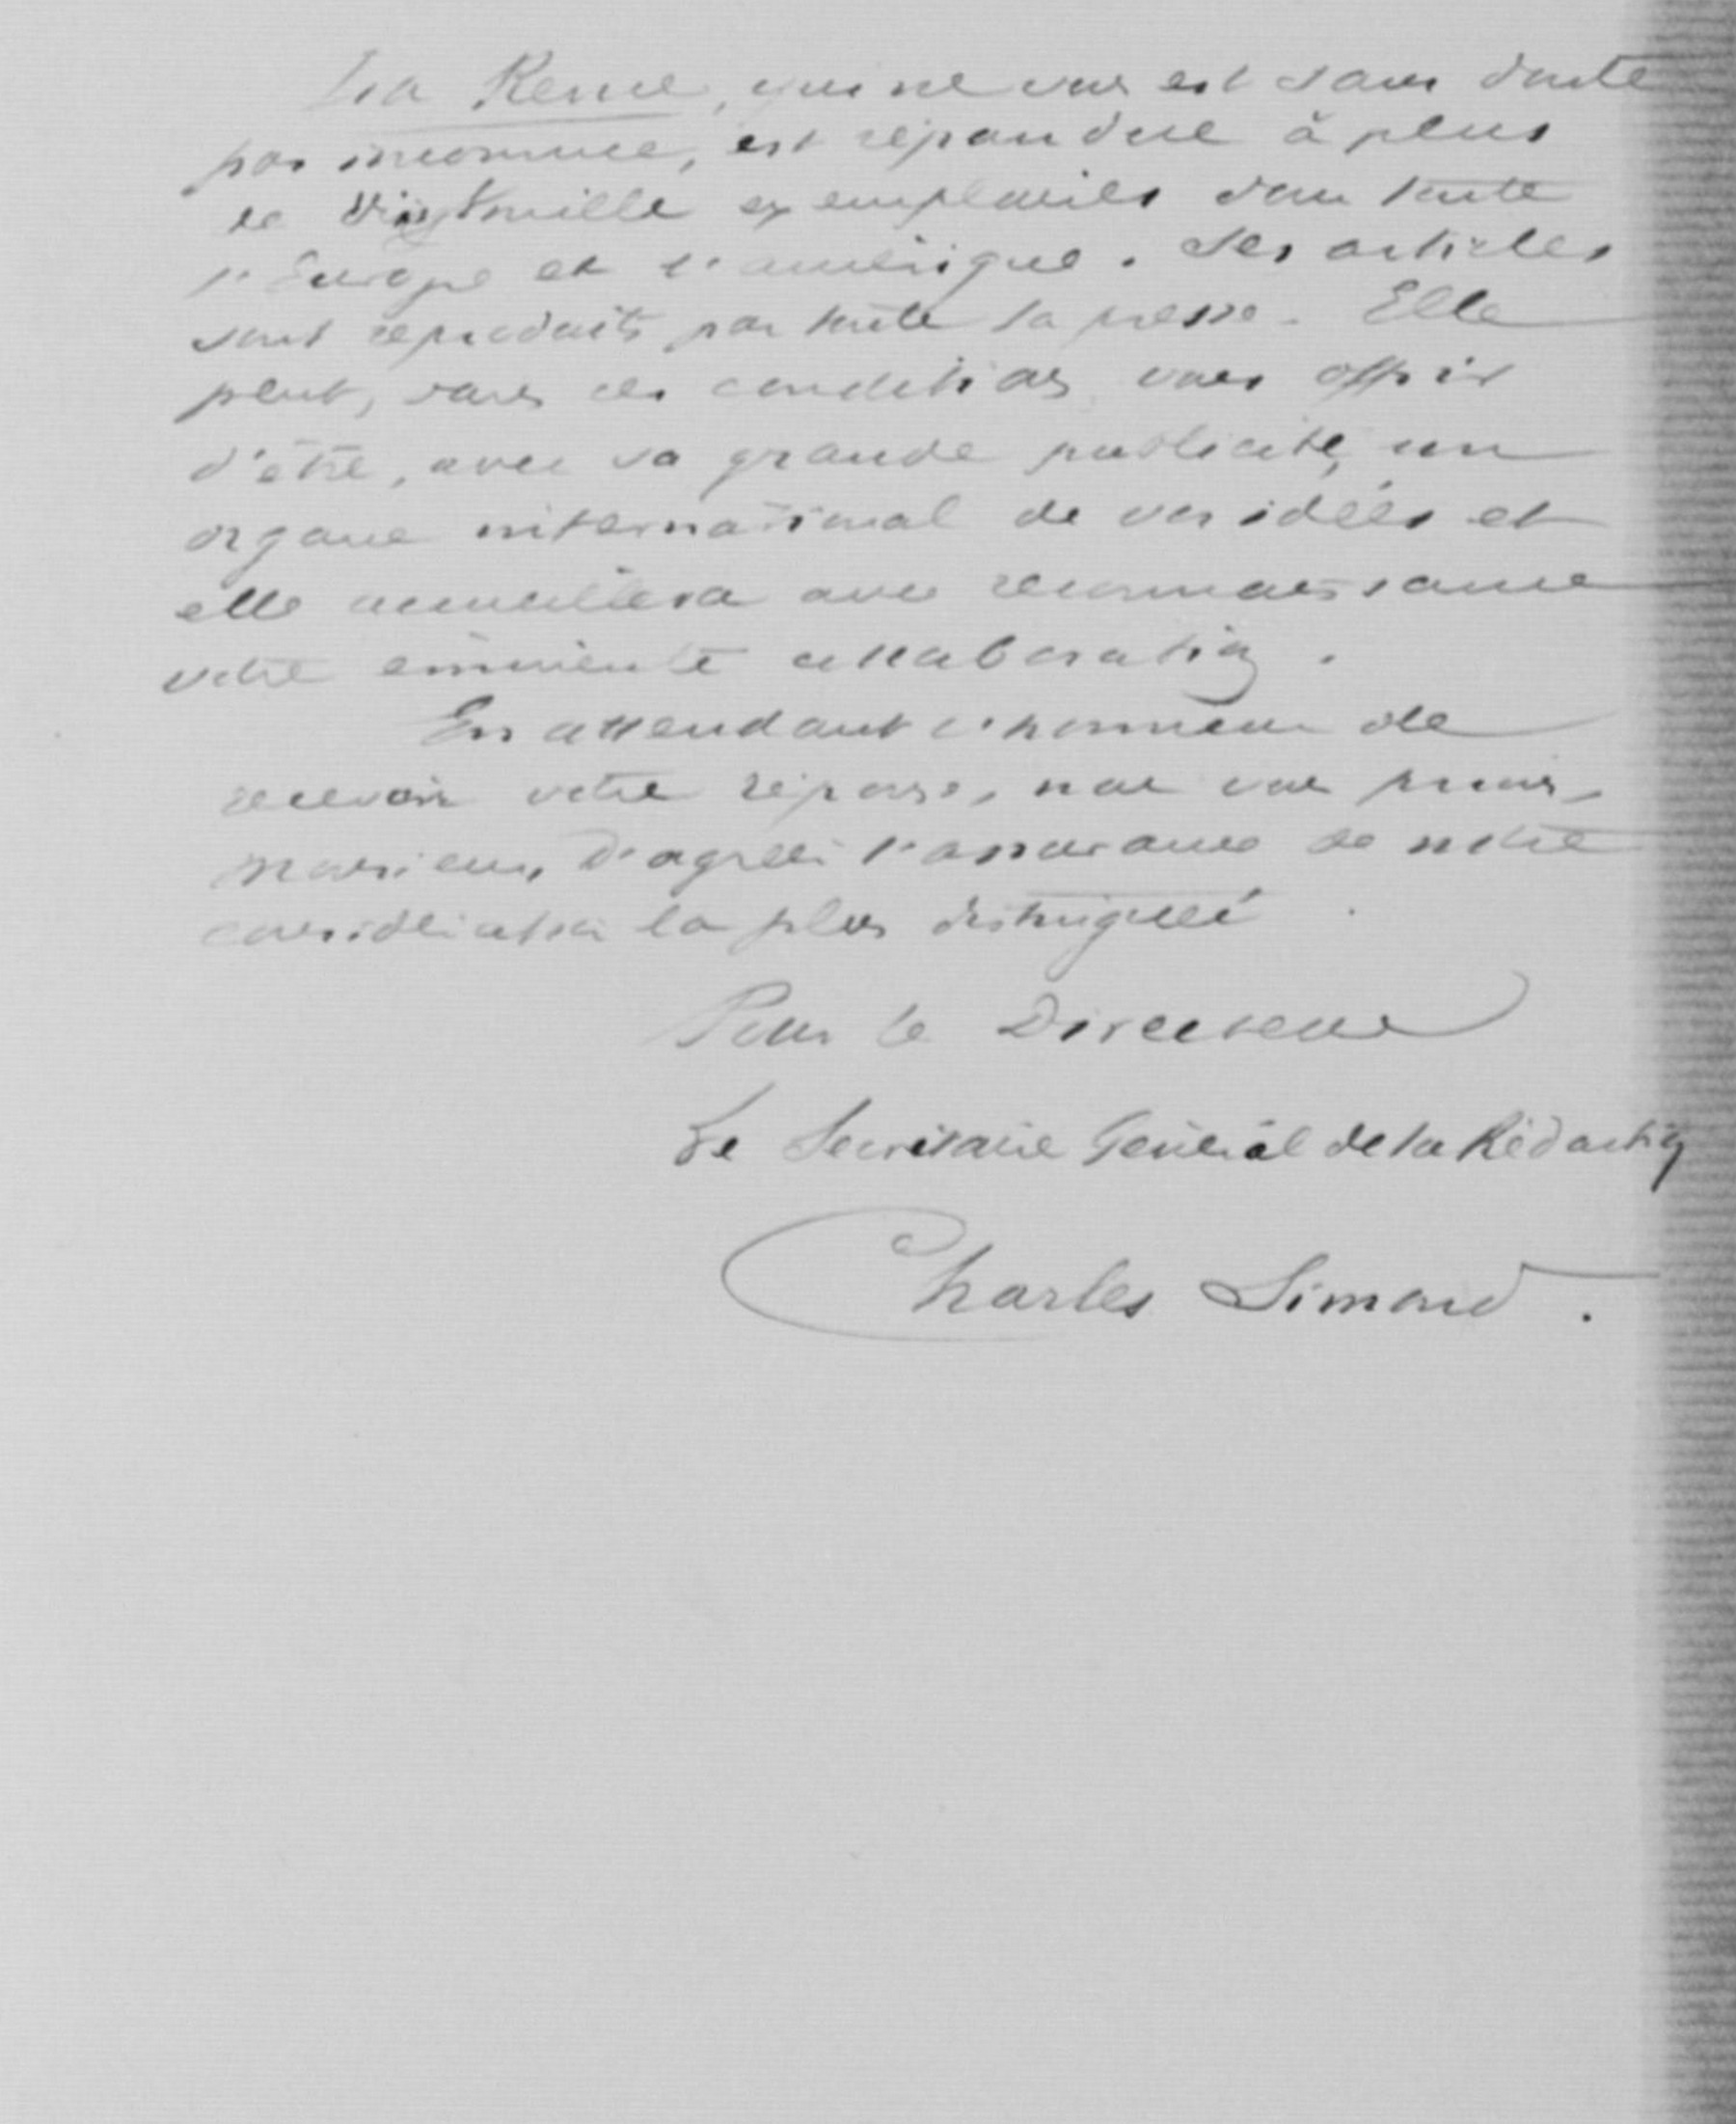 La Revue, qui ne vous est sans doute
pas inconnue, est répandue à plus
de vingt mille exemplaires dans toute
l'Europe et l'Amérique. Ses articles
sont reproduits par toute la presse. Elle
peut, dans ces conditions, vous offrir
d'être, avec sa grande publicité, un
organe international de vos idées et
elle accueillera avec reconnaissance
votre éminente collaboration.
En attendant l'honneur de
recevoir votre réponse, nous vous prions,
Monsieur, d'agréer l'assurance de notre
considération la plus distinguée.
Pour le Directeur
Le Secrétaire Général de la Rédaction
Charles Simond.